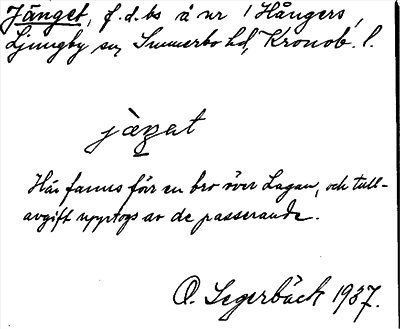 Jänget, f.d. bs å nr 1 Hångers,
Ljungby sn, Sunnerbo hd, Kronob. l.
jäŋat
Här fanns förr en bro över Lagan, och tull-
avgift upptogs av de passerande.
O. Segerbäck 1937.